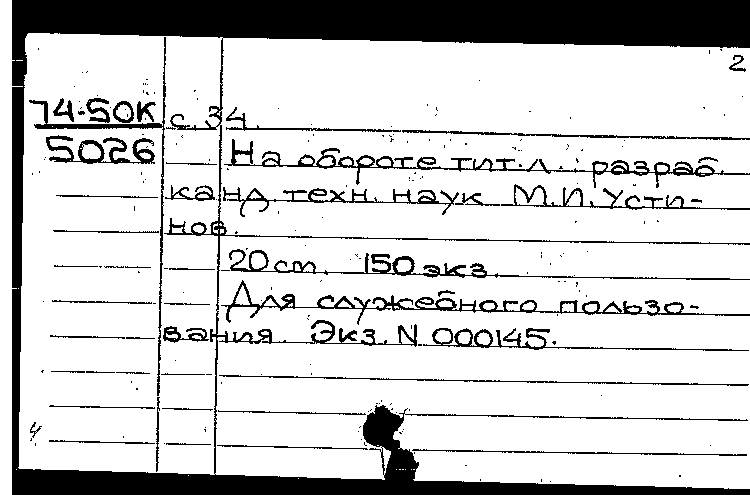 2
74-50К с. 34.
5026
На обороте тит. л.: разраб.
канд. техн. наук М.И. Усти-
нов.
20 cm. 150 экз.
Для служебного пользо-
вания. Экз. N 000145.
4